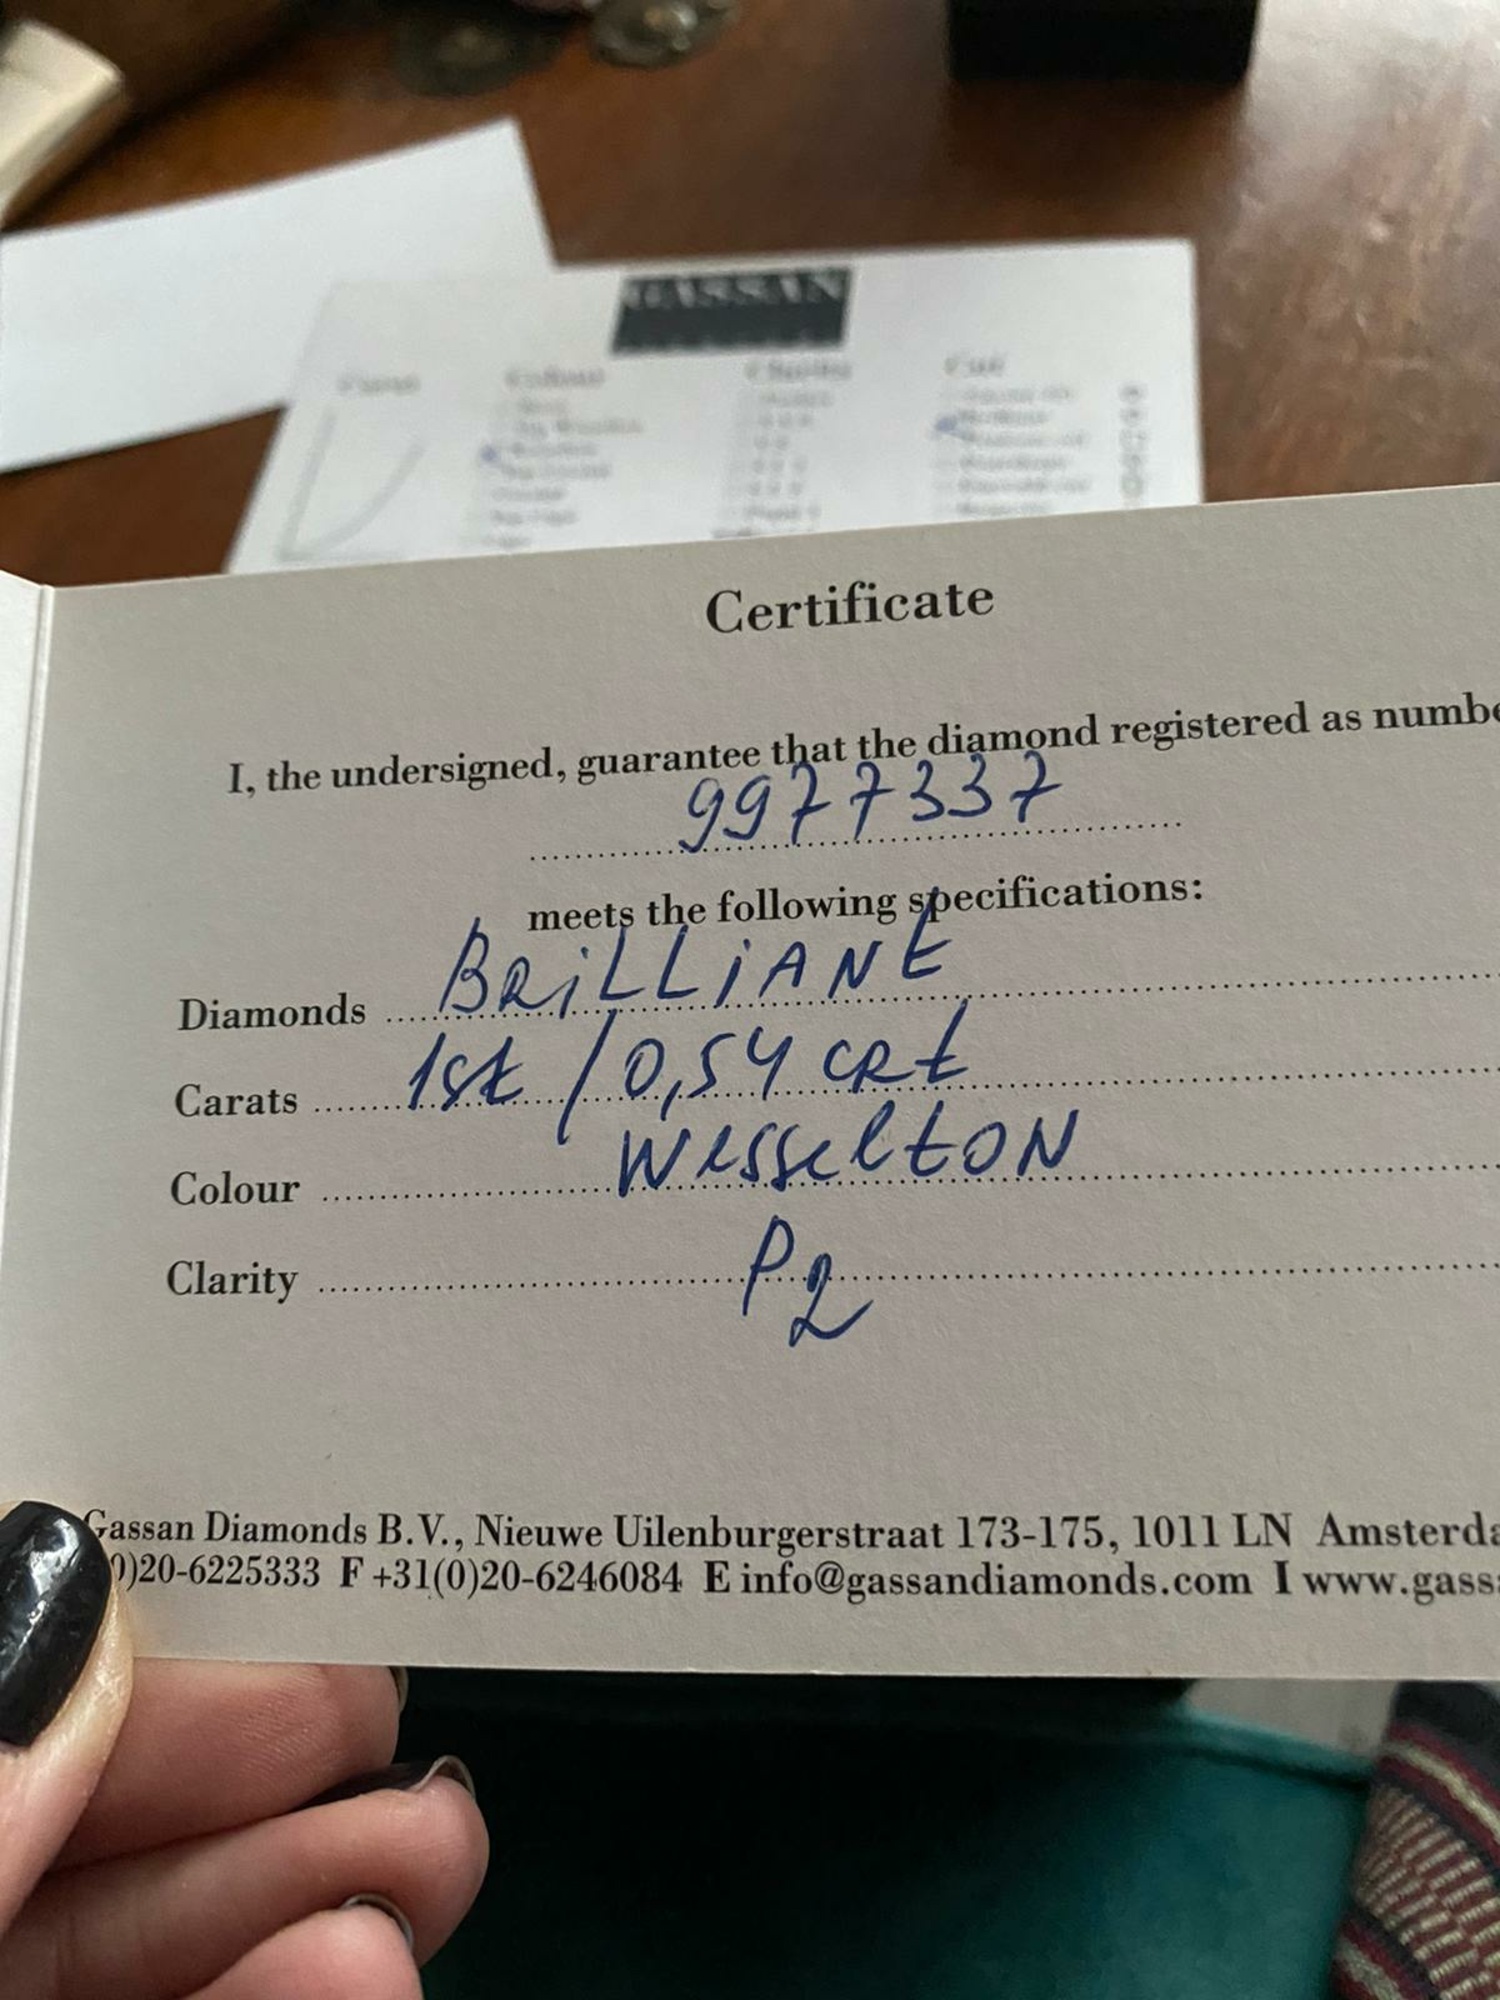 GASSAN
Colour
Clarity
Cut
Certificate
I, the undersigned, guarantee that the diamond registered as numbe
9977337
meets the following specifications:
Diamonds BRiLLiANt
Carats 1st / 0,54 CRt
Colour WesseltON
Clarity P2
Gassan Diamonds B.V., Nieuwe Uilenburgerstraat 173-175, 1011 LN Amsterda
0)20-6225333 F +31(0)20-6246084 E info@gassandiamonds.com I www.gass